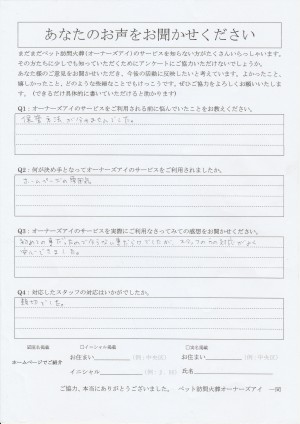 あなたのお声をお聞かせください
まだまだペット訪問火葬(オーナーズアイ)のサービスを知らない方がたくさんいらっしゃいます。
その方たちに少しでも知っていただくためにアンケートにご協力いただけないでしょうか。
あなた様のご意見をお聞かせいただき、今後の活動に反映したいと考えています。よかったこと、
嬉しかったこと、どのような些細なことでもけっこうです。ぜひご協力をよろしくお願いいたしま
す。(できるだけ具体的に書いていただけると助かります)
Q1:オーナーズアイのサービスをご利用される前に悩んでいたことをお教えください。
方法が分かりませんでした。
Q2:何が決め手となってオーナーズアイのサービスをご利用されましたか。
ホームページの
Q3:オーナーズアイのサービスを実際にご利用なさってみての感想をお聞かせください。
初めての事だったので分らない事だらけでしたが、スタッフの方の対応がよく
安心できました。
Q4:対応したスタッフの対応はいかがでしたか。
親切でした。
□イニシャル掲載
ホームページでご紹介
お住まい (例:中央区) お住まい (例:中央区)
イニシャル 氏名
ご協力、本当にありがとうございました。 ペット訪問火葬オーナーズアイ 一同